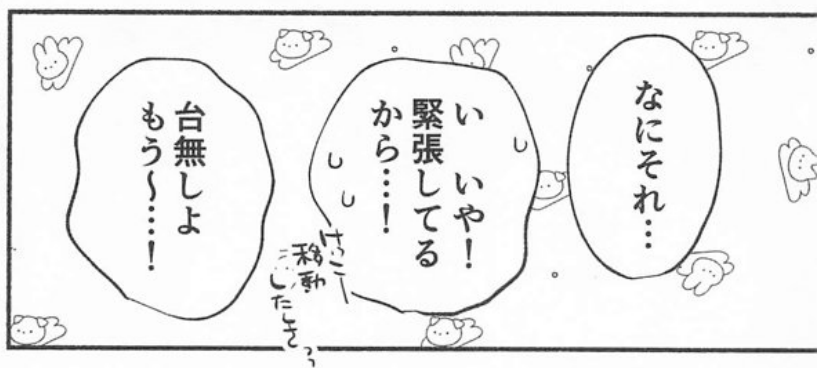 なにそれ…
い いや！
緊張してる
から…！
けっこ
移動
したしさっ
台無しよ
もう〜…！